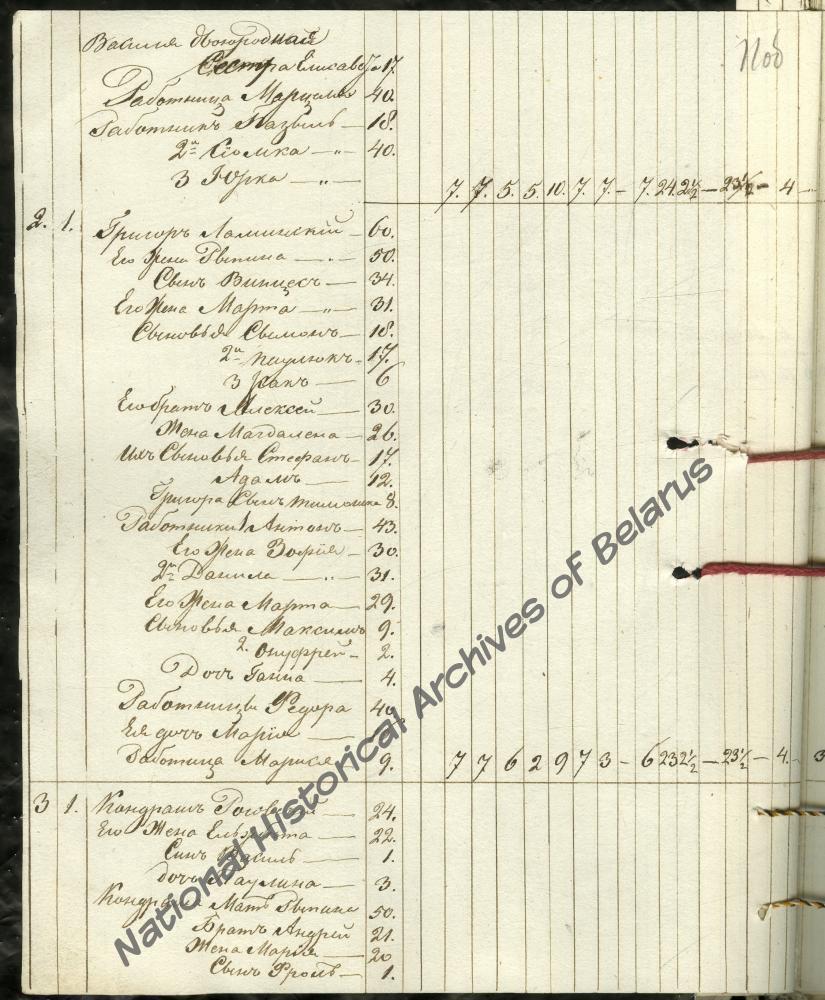 Василия двоюродная
Сестра Елисавета 17.
Работница Марцеля 40.
Работникъ Базыль — 18.
2й Сёомка — „ — 40.
3 Юрка — „ —
7. 7. 5. 5. 10. 7. 7. — 7. 24. 2 1/2 — 23 1/2 — 4 —
Поб
2. 1. Григоръ Ламинскій — 60.
Его Жена Рыпина — „ — 50.
Сынъ Винцесъ — 34.
Его Жена Марта — „ — 31.
Сыновья Сымонъ — 18.
2й Паулюкъ — 17.
3 — 6
Его братъ Алексей — 30.
Жена Магдалена — 26.
Ихъ Сыновья Стефанъ — 17.
Адамъ — 12.
Григора Сынъ Тимошка 8.
Работники 1 Антонъ — 43.
Его Жена Зофія — 30.
2й Данила — „ — 31.
Его Жена Марта — 29.
Сыновья Максимъ 9.
2. Онуфрей — 2.
Дочь Ганна — 4.
Работницы Федора 40.
Ея дочь Марія —
Работница Марися 9.
7 7 6 2 9 7 3 — 6 23 2 1/2 — 23 1/2 — 4. — 3
3 1. Кондратъ — 24.
Его Жена — 22.
Сынъ — 1.
дочь Паулина — 3.
Кондрата Мать Рыпина 50.
Братъ Андрей 21.
Жена Марія — 20
Сынъ Фролъ — 1.
National Historical Archives of Belarus